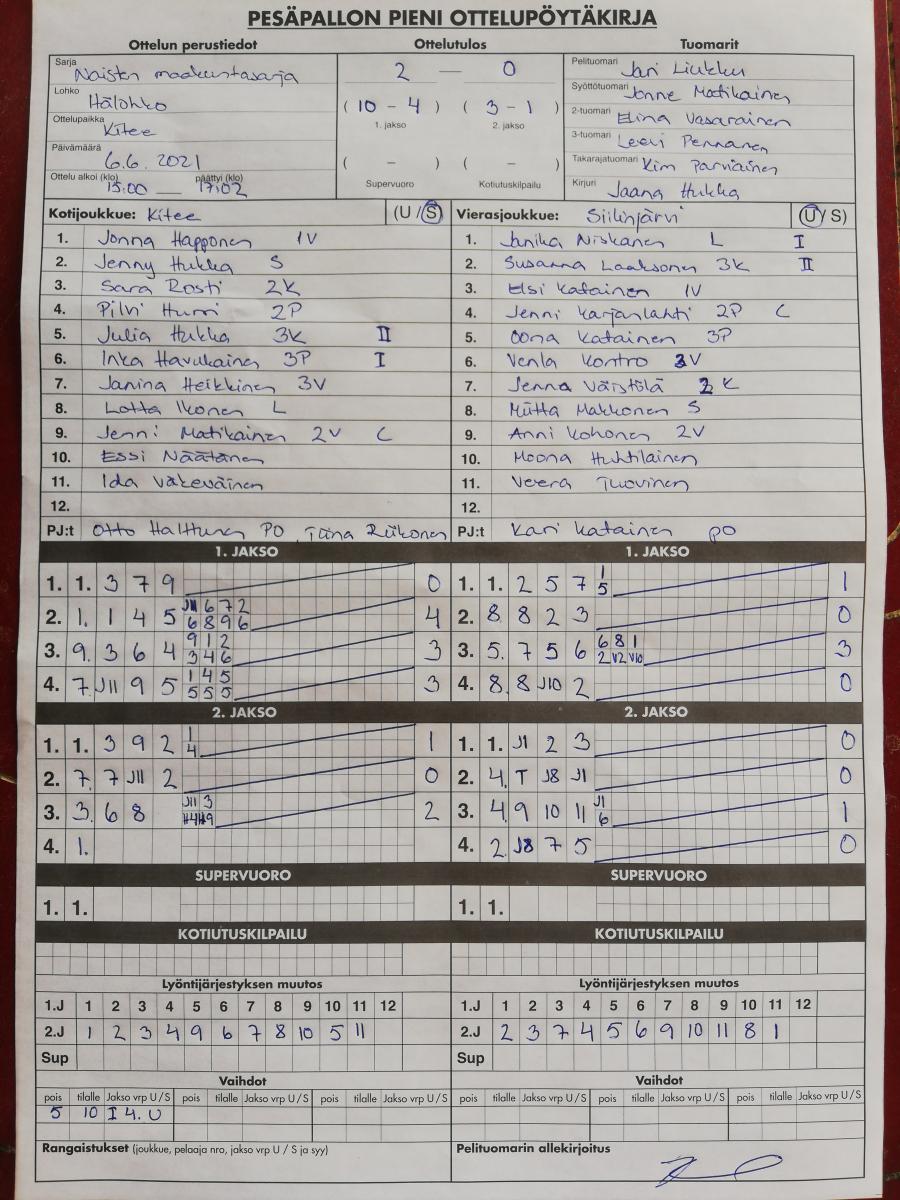 PESÄPALLON PIENI OTTELUPÖYTÄKIRJA
Ottelun perustiedot Ottelutulos Tuomarit
Sarja Naisten maakuntasarja
Lohko Hälohko
Ottelupaikka Kitee
Päivämäärä 6.6. 2021
Ottelu alkoi (klo) 15:00 päättyi (klo) 17:02
2 — 0
( 10 – 4 ) ( 3 – 1 )
1. jakso 2. jakso
( – ) ( – )
Supervuoro Kotiutuskilpailu
Pelituomari Jari Liukku
Syöttötuomari Jonne Matikainen
2-tuomari Elina Vasarainen
3-tuomari Leevi Pennanen
Takarajatuomari Kim Parviainen
Kirjuri Jaana Hukka
Kotijoukkue: Kitee (U / S)
1. Jonna Happonen 1V
2. Jenny Hukka S
3. Sara Rosti 2K
4. Pilvi Hurri 2P
5. Julia Hukka 3K II
6. Inka Havukainen 3P I
7. Janina Heikkinen 3V
8. Lotta Ikonen L
9. Jenni Matikainen 2V C
10. Essi Näätänen
11. Ida Väkeväinen
12.
PJ:t Otto Halttunen PO, Tiina Riikonen
Vierasjoukkue: Siilinjärvi (U / S)
1. Janika Niskanen L I
2. Susanna Laaksonen 3K II
3. Elsi Katainen 1V
4. Jenni Karjanlahti 2P C
5. Oona Katainen 3P
6. Venla Kontro 3V
7. Jenna Väistölä 2K
8. Miitta Makkonen S
9. Anni Kohonen 2V
10. Moona Huhtilainen
11. Veera Tuovinen
12.
PJ:t Kari Katainen PO
1. JAKSO 1. JAKSO
1. 1. 3 7 9 0
2. 1. 1 4 5 J11 6 7 2 4
6 8 9 6
3. 9. 3 6 4 9 1 2 3
3 4 6
4. 7. J11 9 5 1 4 5 3
5 5 5
1. 1. 2 5 7 1 1
5
2. 8. 8 2 3 0
3. 5. 7 5 6 6 8 1 3
2 V2 V10
4. 8. 8 J10 2 0
2. JAKSO 2. JAKSO
1. 1. 3 9 2 1 1
4
2. 7. 7 J11 2 0
3. 3. 6 8 J11 3 2
H4 H9
4. 1.
1. 1. J1 2 3 0
2. 4. T J8 J1 0
3. 4. 9 10 11 J1 1
6
4. 2. J8 7 5 0
SUPERVUORO SUPERVUORO
1. 1. 1. 1.
KOTIUTUSKILPAILU KOTIUTUSKILPAILU
Lyöntijärjestyksen muutos Lyöntijärjestyksen muutos
1.J 1 2 3 4 5 6 7 8 9 10 11 12 1.J 1 2 3 4 5 6 7 8 9 10 11 12
2.J 1 2 3 4 9 6 7 8 10 5 11 2.J 2 3 7 4 5 6 9 10 11 8 1
Sup Sup
Vaihdot Vaihdot
pois tilalle Jakso vrp U / S pois tilalle Jakso vrp U / S pois tilalle Jakso vrp U / S pois tilalle Jakso vrp U / S pois tilalle Jakso vrp U / S pois tilalle Jakso vrp U / S
5 10 I 4. U
Rangaistukset (joukkue, pelaaja nro, jakso vrp U / S ja syy) Pelituomarin allekirjoitus